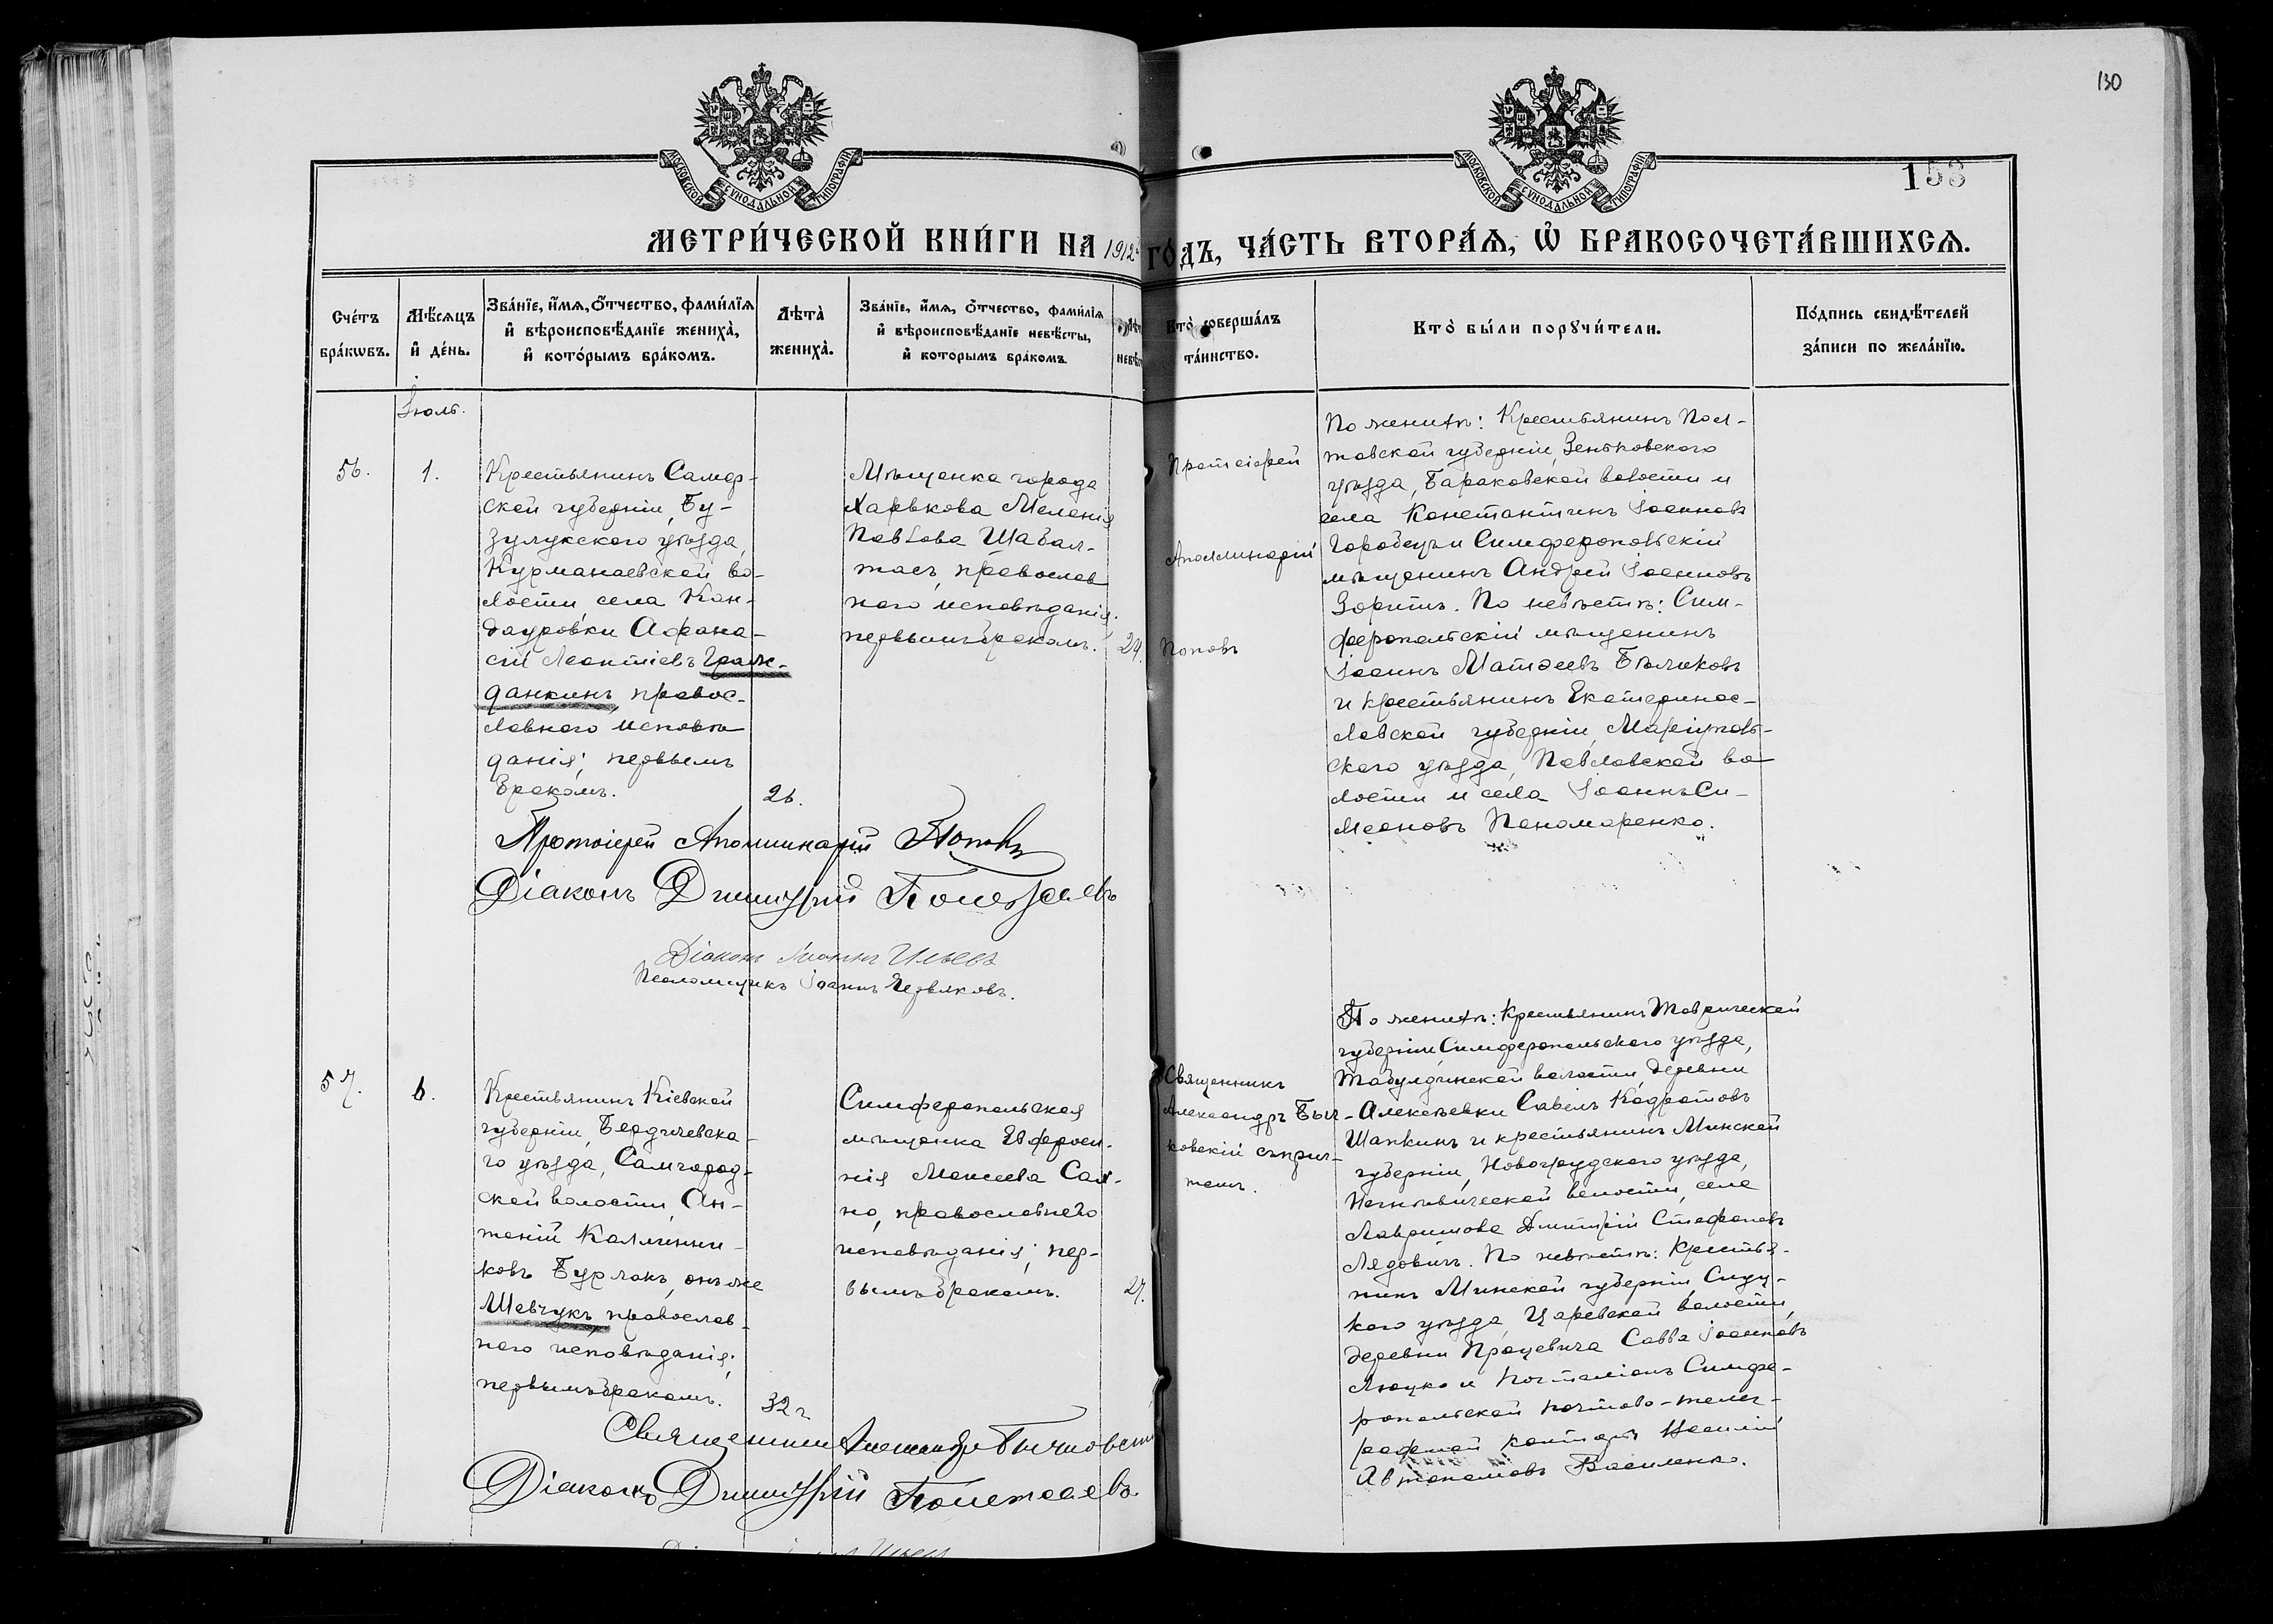 130
153
МОСКОВСКОЙ СУНОДАЛЬНОЙ ТИПОГРАФІИ
МОСКОВСКОЙ СУНОДАЛЬНОЙ ТИПОГРАФІИ
МЕТРИ́ЧЕСКОЙ КНИ́ГИ НА 1912 ГО́ДЪ, ЧА́СТЬ ВТОРА́Я, Ѡ҆ БРАКОСОЧЕТА́ВШИХСЯ.
Сче́тъ
бра́кѡвъ.
Мѣ́сяцъ
и҆ де́нь.
Зва́нїе, и҆́мя, ѻ҆́тчество, фами́лїя
и҆ вѣроисповѣ́данїе жениха̀,
и҆ кото́рымъ бра́комъ.
Лѣ́та
жениха̀.
Зва́нїе, и҆́мя, ѻ҆́тчество, фами́лїя
и҆ вѣроисповѣ́данїе невѣ́сты,
и҆ которымъ бра́комъ.
Кто̀ соверша́лъ
та́инство.
Кто̀ бы́ли порꙋчи́тели.
По́дпись свидѣ́телей
за́писи по жела́нїю.
Іюль.
56.
1.
Крестьянинъ Самар-
ской губерніи, Бу-
зулукскаго уѣзда,
Курманаевской во-
лости, села Кан-
дауровки Афана-
сій Леонтіевъ Граж-
данкинъ, правос-
лавнаго исповѣ
данія; первымъ
бракомъ.
26.
Мѣщанка города
Харькова Меланія
Павлова Шабал-
тасъ, православ
наго исповѣданія.
первымъ бракомъ.
24.
Протоіерей
Аполлинарій
Поповъ
По женихѣ: Крестьянинъ Пол-
тавской губерніи, Зеньковскаго
уѣзда, Бараковской волости и
села Константинъ Іоанновъ
Городецъ и Симферопольскій
мѣщанинъ Андрей Іоанновъ
Зоритъ. По невѣстѣ: Сим-
феропольскій мѣщанинъ
Іоаннъ Матѳеевъ Бѣликовъ
и крестьянинъ Екатеринос-
лавской губерніи, Маріуполь-
скаго уѣзда, Павловской во-
лости и села Іоаннъ Си-
меоновъ Пономаренко.
Протоіерей Аполлинарій Поповъ
Діаконъ Димитрій
Діаконъ Іоаннъ Ильевъ
Псаломщикъ Іоаннъ Червяковъ.
57.
6.
Крестьянинъ Кіевской
губерніи, Бердичевска-
го уѣзда, Самгород-
ской волости, Ан-
тоній Каллинни-
ковъ Бурлакъ, онъ же
Шевчукъ, православ-
наго исповѣданія;
первымъ бракомъ.
32 г.
Симферопольская
мѣщанка Евфроси-
нія Моисеева Сал-
но, православнаго
исповѣданія; пер-
вымъ бракомъ.
27.
Священникъ
Александръ Быч-
ковскій съ прич-
томъ.
По женихѣ: Крестьянинъ Таврической
губерніи, Симферопольскаго уѣзда,
Табулдинской волости, деревни
Алексѣевки Савелъ Кодратовъ
Шапкинъ и крестьянинъ Минской
губерніи, Новогрудскаго уѣзда,
волости, села
Лавринова Димитрій Стефановъ
Лядовичъ. По невѣстѣ: Крестья-
нинъ Минской губерніи, Слуц-
каго уѣзда, Царевской волости,
деревни Працевича Савва Іоанновъ
Люцко и почталіонъ Симфе-
ропольской почтово-телег-
рафной конторы Василій
Автономовъ Василенко.
Священникъ Александръ Бычковскій
Діаконъ Димитрій